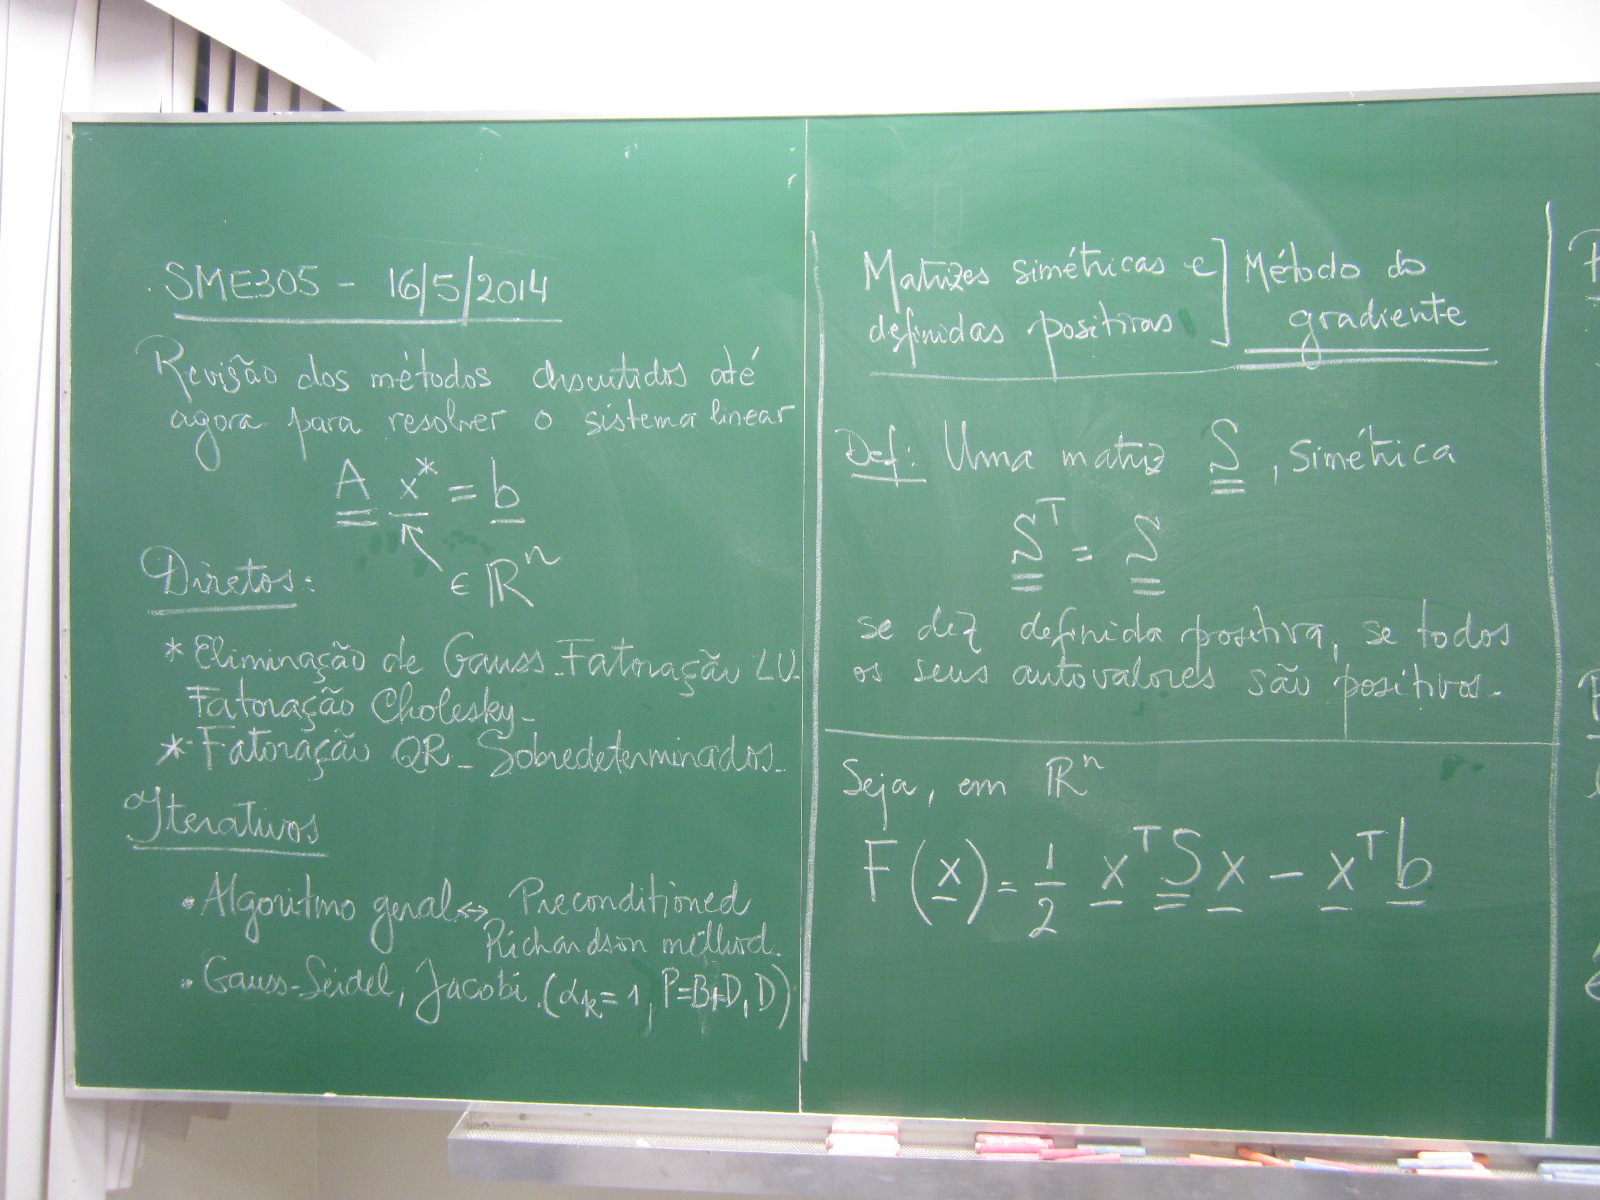 SME305 - 16/5/2014
Revisão dos métodos discutidos até
agora para resolver o sistema linear
A x* = b
∈ ℝⁿ
Diretos:
* Eliminação de Gauss - Fatoração LU -
Fatoração Cholesky -
* Fatoração QR - Sobredeterminados -
Iterativos
• Algoritmo geral ↔ Preconditioned
Richardson method.
• Gauss-Seidel, Jacobi. (αₖ = 1, P=B+D, D)
Matrizes simétricas e] Método do
definidas positivas] gradiente
Def: Uma matriz S, simétrica
Sᵀ = S
se diz definida positiva, se todos
os seus autovalores são positivos.
Seja, em ℝⁿ
F(x) = 1/2 xᵀ S x - xᵀ b